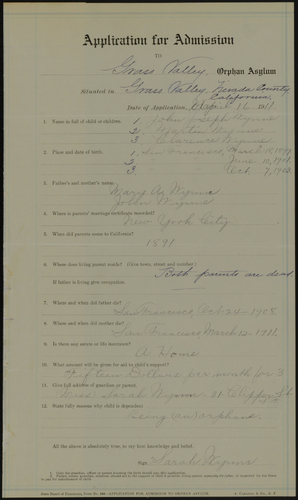 Application for Admission
TO
Grass Valley Orphan Asylum
Situated in Grass Valley, Nevada County
California
Date of Application, April 16 1911
1. Name in full of child or children. 1 John Joseph Wynne
2. Martin Wynne
3 Clarence Wynne
2. Place and date of birth. 1 San Francisco, March 18, 1899
2 June 10, 1901
3 Oct. 7, 1903
3. Father's and mother's name.
Mary A. Wynne
John Wynne
4. When is parents' marriage certificate married?
New York City
5. When did parents come to California?
1891
6. Where does living parent reside? (Give town, street and number)
Both parents are dead
If father is living give occupation.
7. Where and when did father die?
San Francisco Oct 25 - 1908
8. Where and when did mother die?
San Francisco, March 12 - 1911
9. Is there any estate or life insurance?
A Home
10. What amount will be given for aid to child's support?
Dollars per month for 3
11. Give full address of guardian or parent.
Miss Sarah Wynne 21 Clipper St.
S.F.
12. State fully reasons why child is dependent
Being an orphans.
All the above is absolutely true, to my best knowledge and belief.
Sign Sarah Wynne